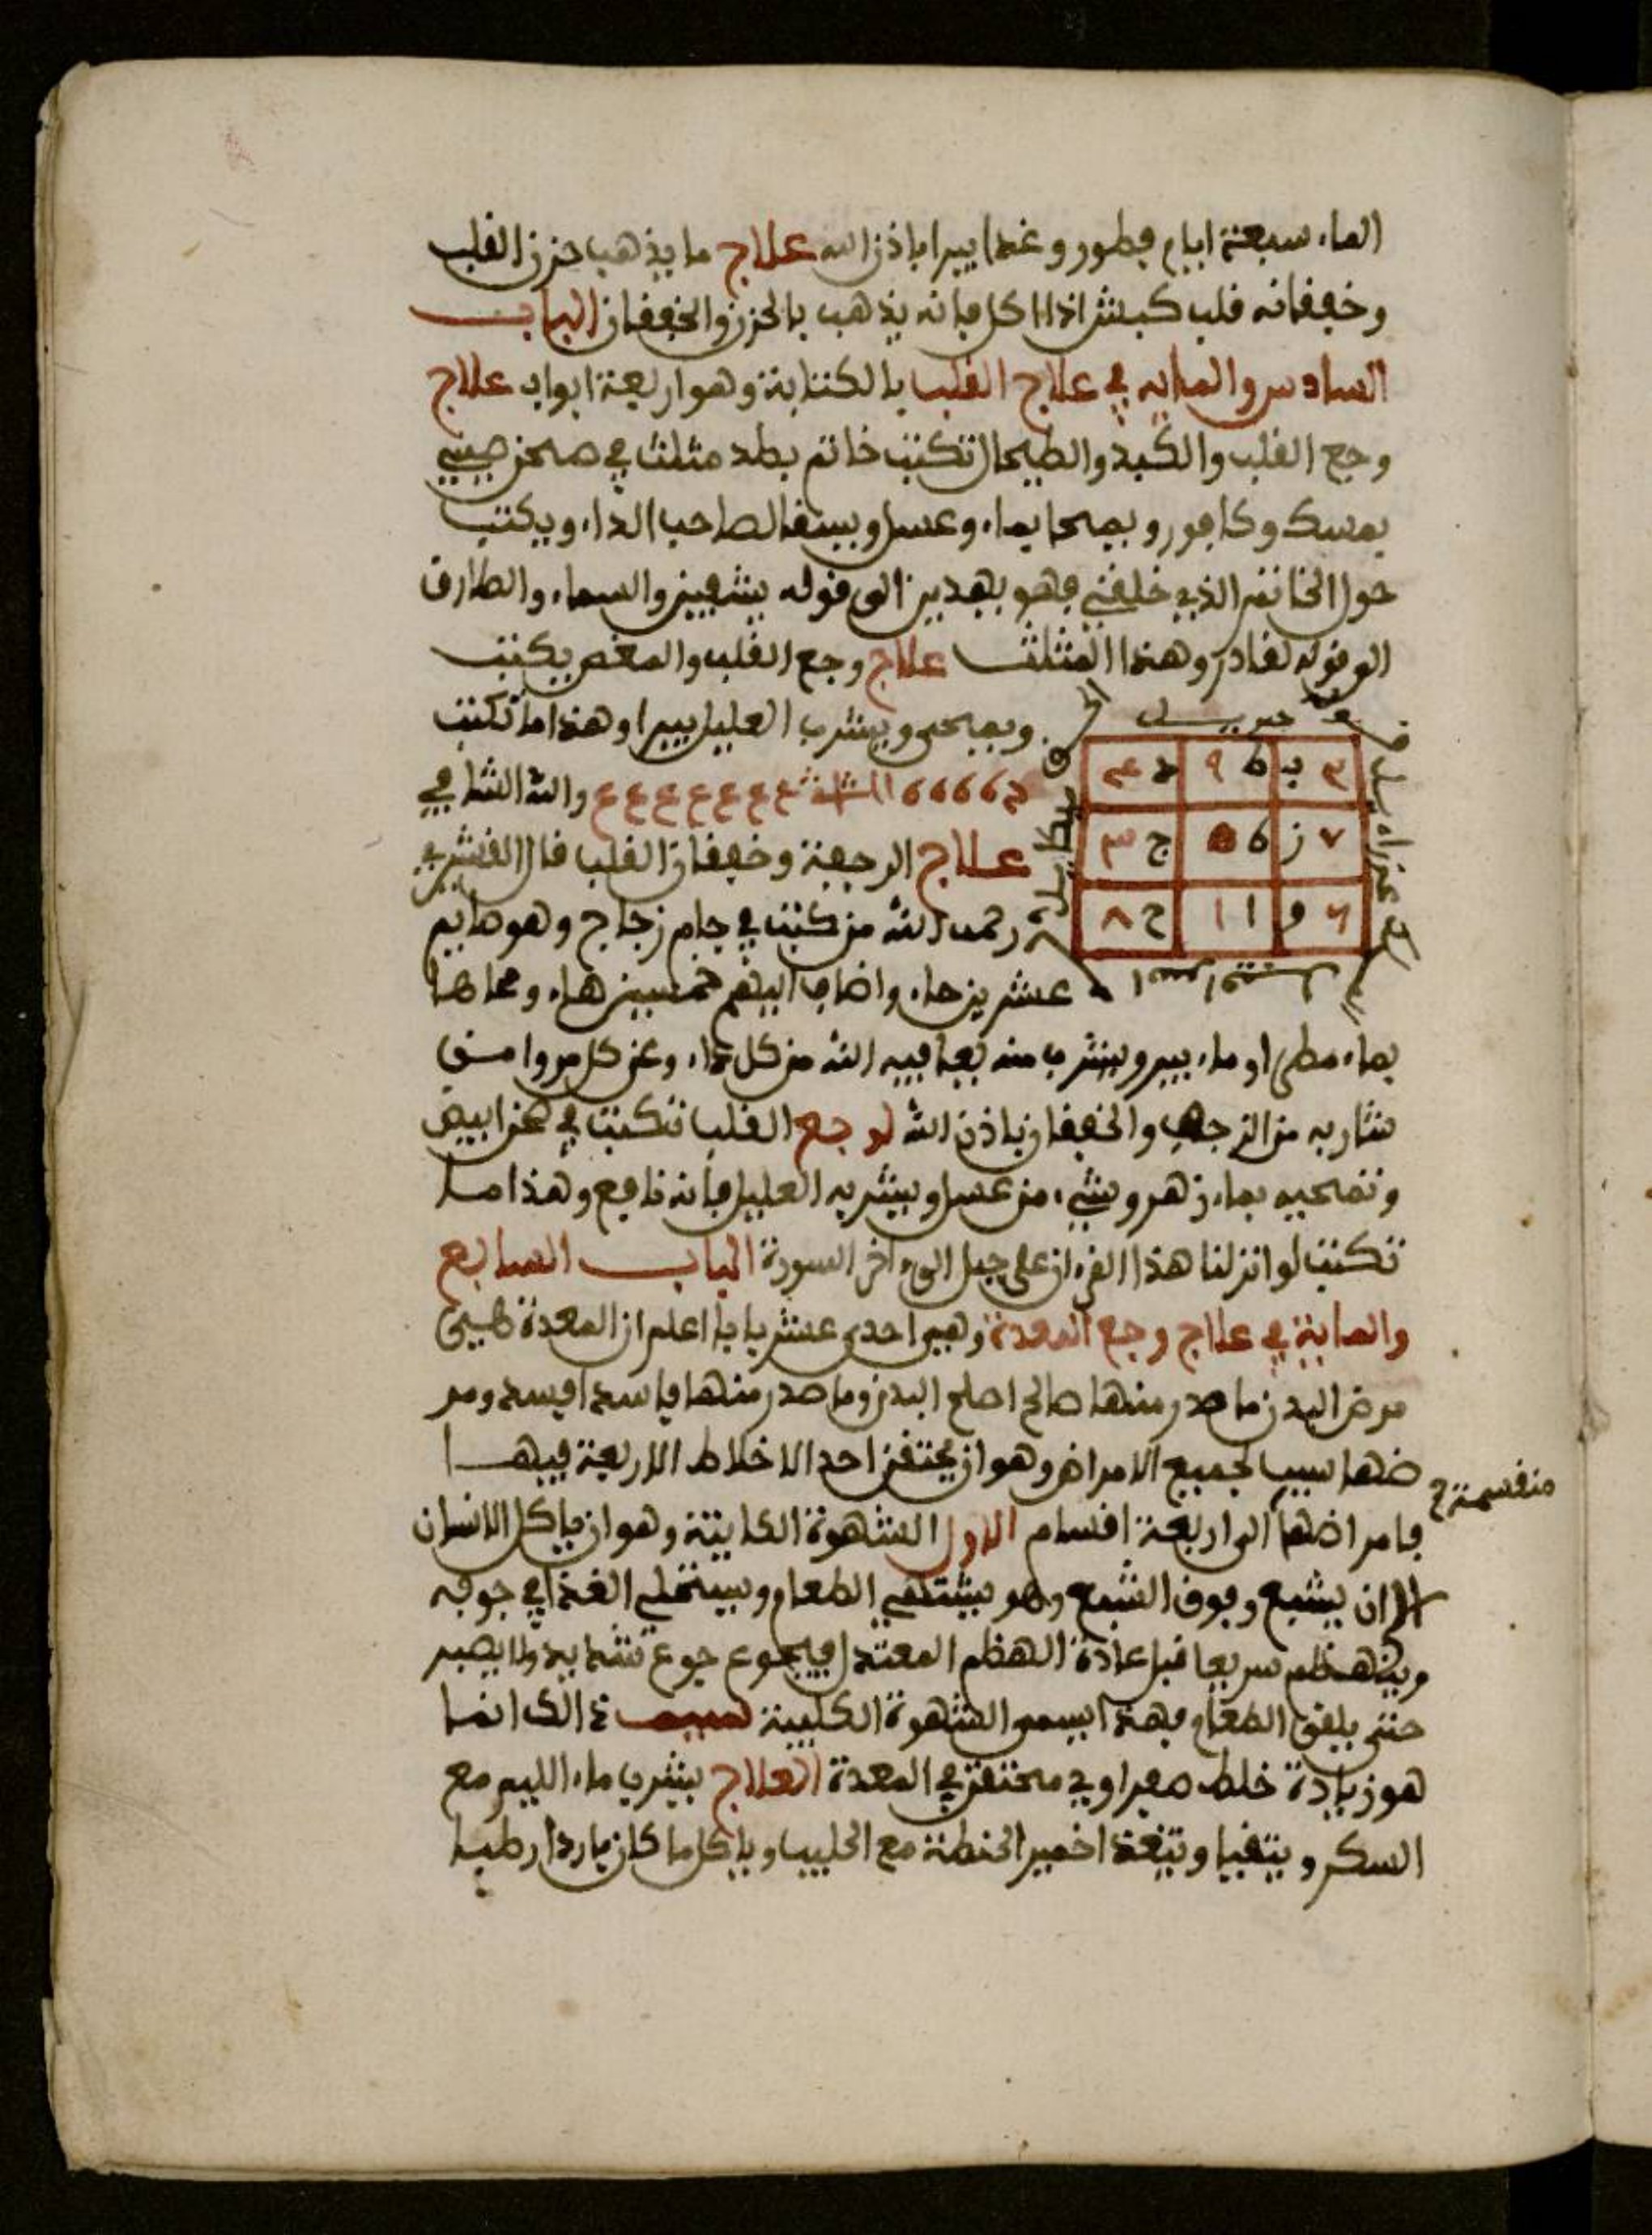 الماء سبعة ايام فطور وغدا يبرا باذن الله علاج ما يذهب حزن القلب
وخفقانه قلب كبش اذا اكل فانه يذهب بالحزن والخفقان الباب
السادس والمايه في علاج القلب بالكتابة وهو اربعة ابواب علاج
وجع القلب والكبد والطيحال تكتب خاتم بطد مثلث في صحن صيني
بمسك وكافور ويمحا بماء وعسل ويسقا لصاحب الداء ويكتب
حول الخاتم الذي خلقني فهو يهدين الى قوله يشفين والسماء والطارق
الى قوله لقادر وهذا المثلث علاج وجع القلب والمغص يكتب
ويمحى ويشرب العليل يبرا وهذا ما تكتب
جبريل
عزراءيل
ميكاييل
٣ ب ٩ ط ٤ د
٧ ز ٥ ٥ ٣ ج
٦ و ١ ا ٨ ح
ع ع ع ع ع ع ع والله الشافي
علاج الرجفة وخفقان القلب قال القشيري
رحمه الله من كتب في جام زجاج وهو هايم
عشرين حاء واضاف اليهم خمسين هاء ومحاها
بماء مطر او ماء بير ويشرب منه يعافيه الله من كل داء وعن كل مر وامن
شاربه من الرجف والخفقان باذن الله لوجع القلب تكتب في ابيض
وتمحيه بماء زهر وشيء من عسل ويشربه العليل فانه نافع وهذا ما
تكتب لو انزلنا هذا القرءان على جبل الى ءاخر السورة الباب السابع
والماية في علاج وجع المعدة وهي احدى عشر بابا اعلم ان المعدة هي
مرض البدن ما صدر منها صالح اصلح البدن وما صدر منها فاسد افسد ومر
ضها سبب لجميع الامراض وهو ان يحتقن احد الاخلاط الاربعة فيها
منقسمة
فامراضها الى اربعة اقسام الاول الشهوة الكابتة وهو ان ياكل الانسان
الى ان يشبع وفوق الشبع وهو يشتهي الطعام ويستحلي الغذا في جوفه
وينهظم سريعا قبل عادة الهظم المعتدل فيجوع جوع شديد ولا يصبر
حتى يلقى الطعام فهذا يسمى الشهوة الكلبية سبب ذالك انما
هو زيادة خلط صفراوي محتقن في المعدة العلاج يشرب ماء الليم مع
السكر ويتقيا ويتغذا خمير الحنطة مع الحليب وياكل ما كان باردا رطبا